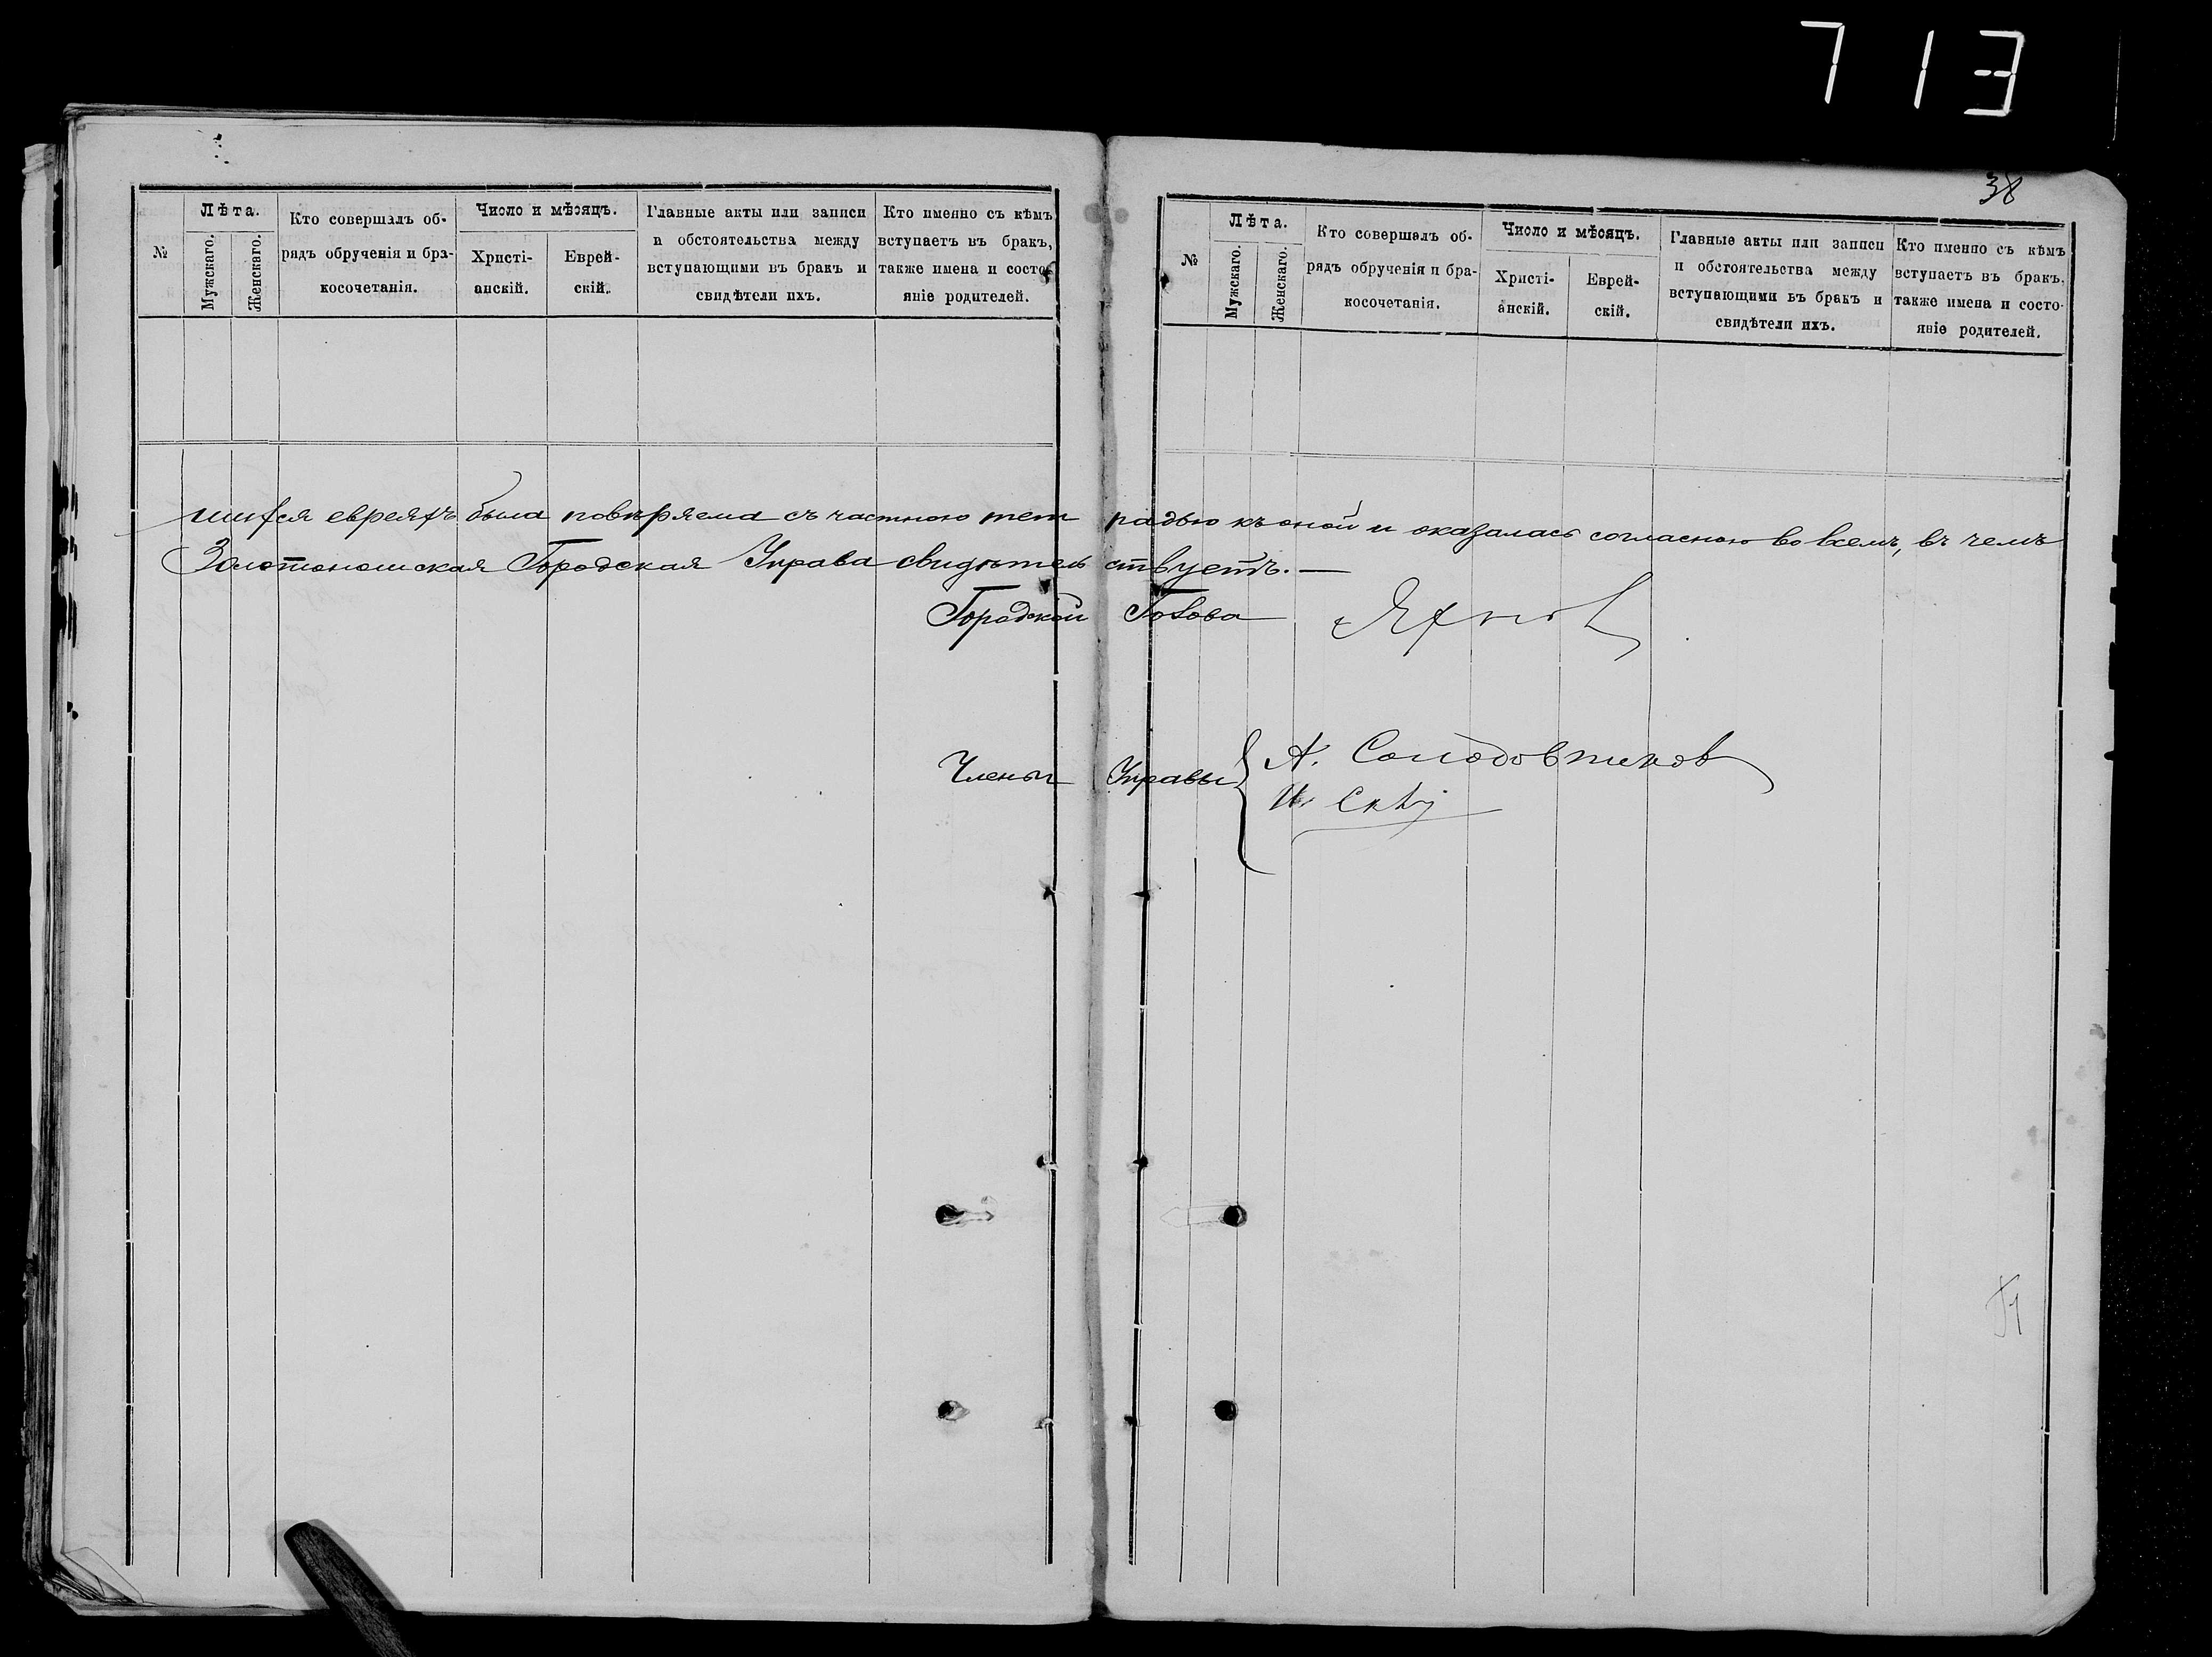 713
38
№
Лѣта.
Мужскаго.
Женскаго.
Кто совершалъ об-
рядъ обрученія и бра-
косочетанія.
Число и мѣсяцъ.
Христі-
анскій.
Еврей-
скій.
Главные акты или записи
и обстоятельства между
вступающими въ бракъ и
свидѣтели ихъ.
Кто именно съ кѣмъ
вступаетъ въ бракъ,
также имена и состо-
яніе родителей.
№
Лѣта.
Мужскаго.
Женскаго.
Кто совершалъ об-
рядъ обрученія и бра-
косочетанія.
Число и мѣсяцъ.
Христі-
анскій.
Еврей-
скій.
Главные акты или записи
и обстоятельства между
вступающими въ бракъ и
свидѣтели ихъ.
Кто именно съ кѣмъ
вступаетъ въ бракъ,
также имена и состо-
яніе родителей.
шихся евреяхъ была повѣряема съ частною тетрадью къ оной и оказалась согласною во всемъ, въ чемъ
Золотоношская Городская Управа свидѣтельствуетъ. —
Городской Голова
Члены Управы
А. Солодовников
И.